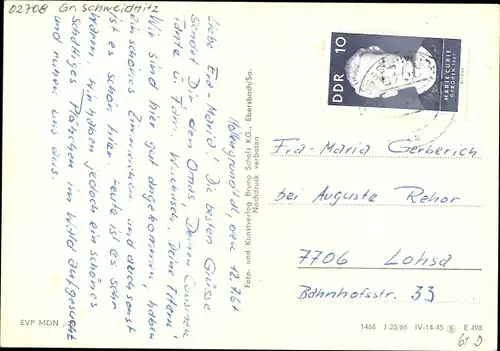 02708 Gr. Schweidnitz
den 12.7.67
Liebe Eva-Maria! Die besten Grüsse
sendet Dir
Tante u. Fam. Deine Eltern!
Wir sind hier gut angekommen, haben
ein schönes Zimmerchen und auch sonst
ist es schön hier. Heute ist es sehr
warm, wir haben jedoch ein schönes
schattiges Plätzchen im Wald aufgesucht
und ruhen uns aus.
EVP MDN
Foto- und Kunstverlag Bruno Scholz KG., Ebersbach/Sa.
Nachdruck verboten
DDR 10
MARIE CURIE
GEBOREN 1867
Eva-Maria Gerberich
bei Auguste Rehor
7706 Lohsa
Bahnhofsstr. 33
1468 J 20/66 IV-14-45 E 498
61 D